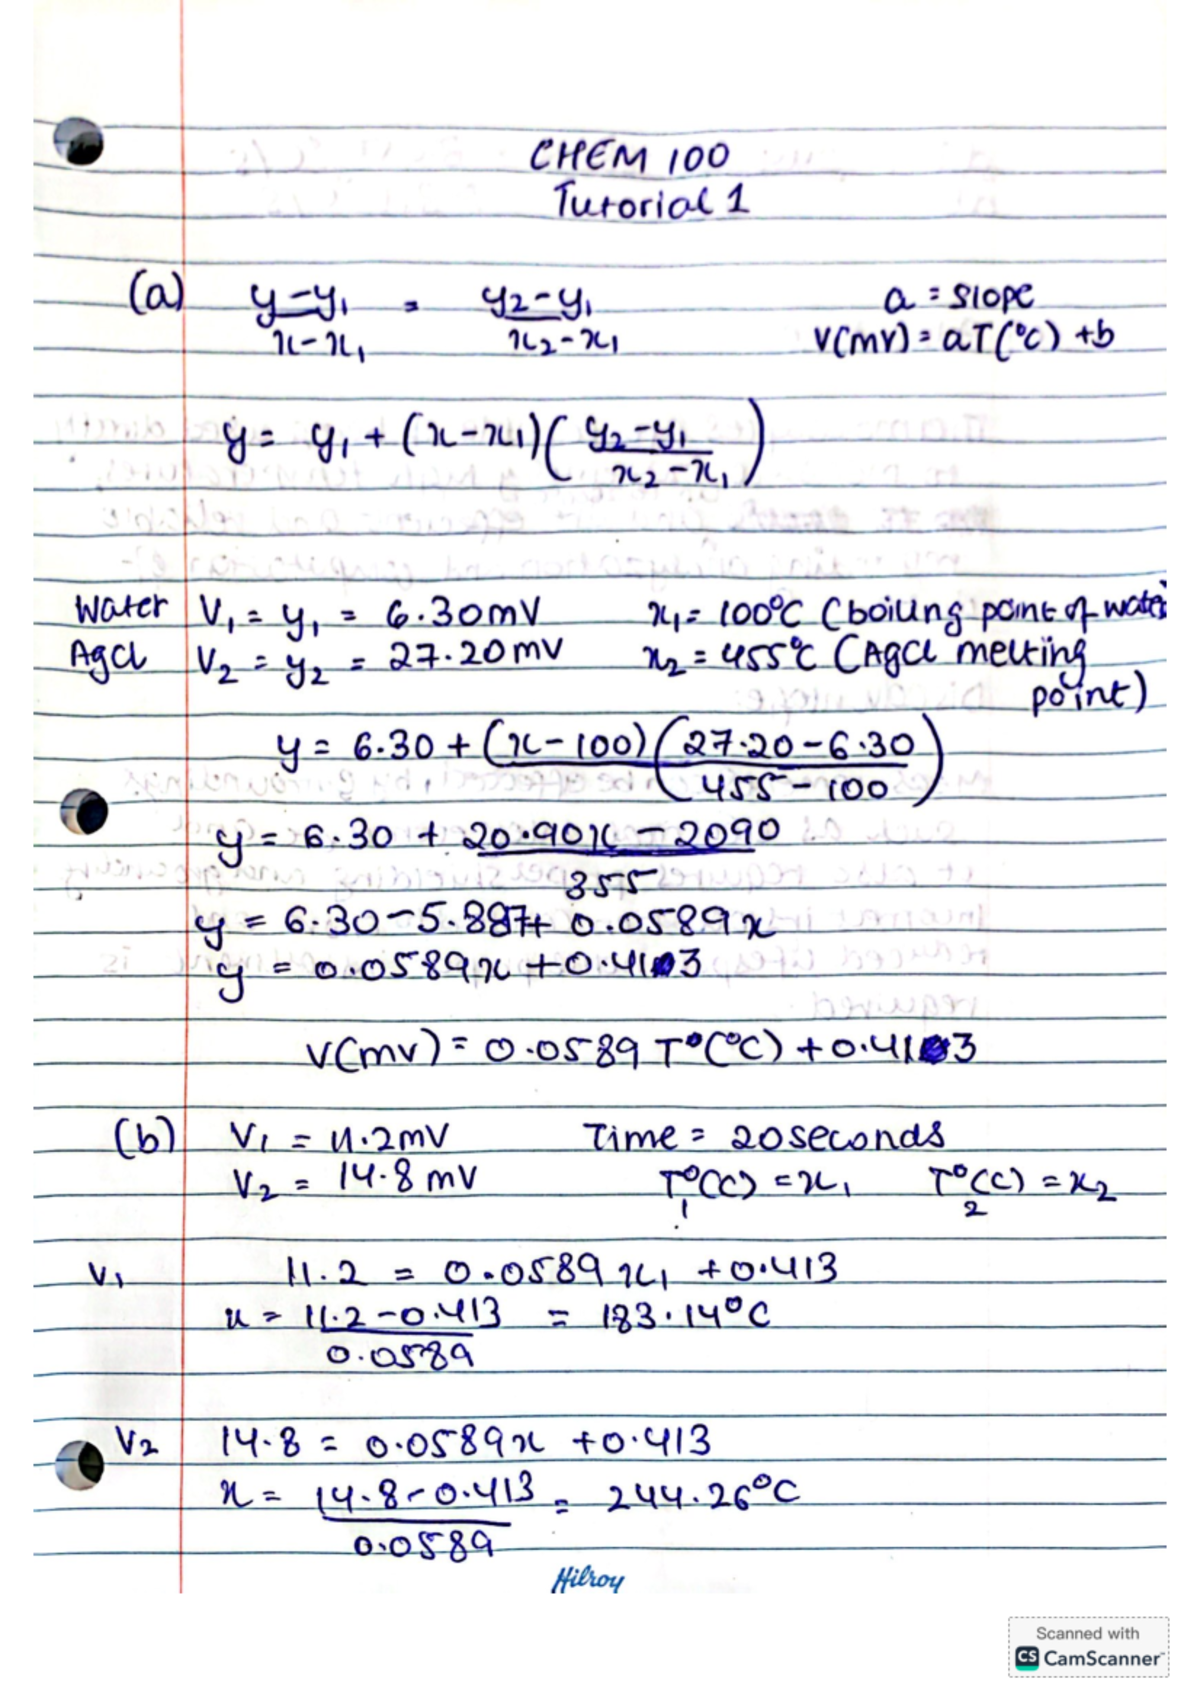 CHEM 100
Tutorial 1
(a) y-y₁/x-x₁ = y₂-y₁/x₂-x₁ a = slope
V(mV) = aT(°C) + b
y = y₁ + (x-x₁)(y₂-y₁/x₂-x₁)
Water V₁ = y₁ = 6.30mV x₁ = 100°C (boiling point of water
AgCl V₂ = y₂ = 27.20mV x₂ = 455°C (AgCl melting
point)
y = 6.30 + (x-100)(27.20-6.30/455-100)
y = 6.30 + 20.90x - 2090/355
y = 6.30 - 5.887 + 0.0589x
y = 0.0589x + 0.413
V(mV) = 0.0589 T°(°C) + 0.413
(b) V₁ = 11.2mV Time = 20seconds
V₂ = 14.8 mV T₁°(C) = x₁ T₂°(C) = x₂
V₁ 11.2 = 0.0589x₁ + 0.413
x = 11.2-0.413/0.0589 = 183.14°C
V₂ 14.8 = 0.0589x + 0.413
x = 14.8-0.413/0.0589 = 244.26°C
Hilroy
Scanned with
CS CamScanner